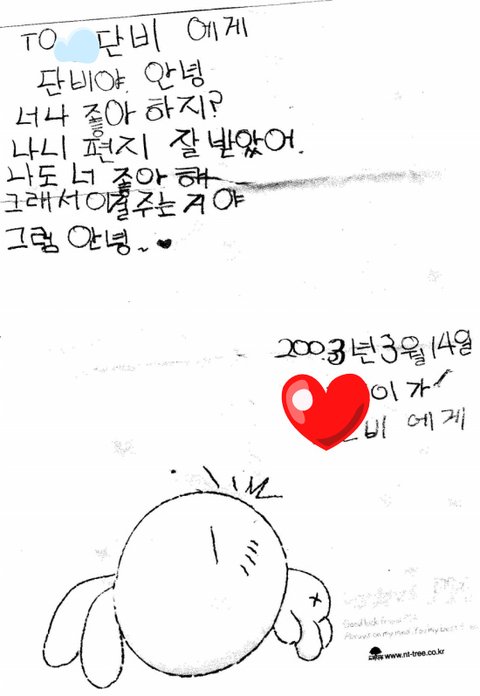 TO 단비 에게
단비야. 안녕
너나 좋아 하지?
나니 편지 잘 받았어.
나도 너 좋아 해
그래서 이걸주는거야
그럼 안녕~ ♥
2003년3월14일
이가
비 에게
Good luck
Always on my mind. for my best
www.nt-tree.co.kr